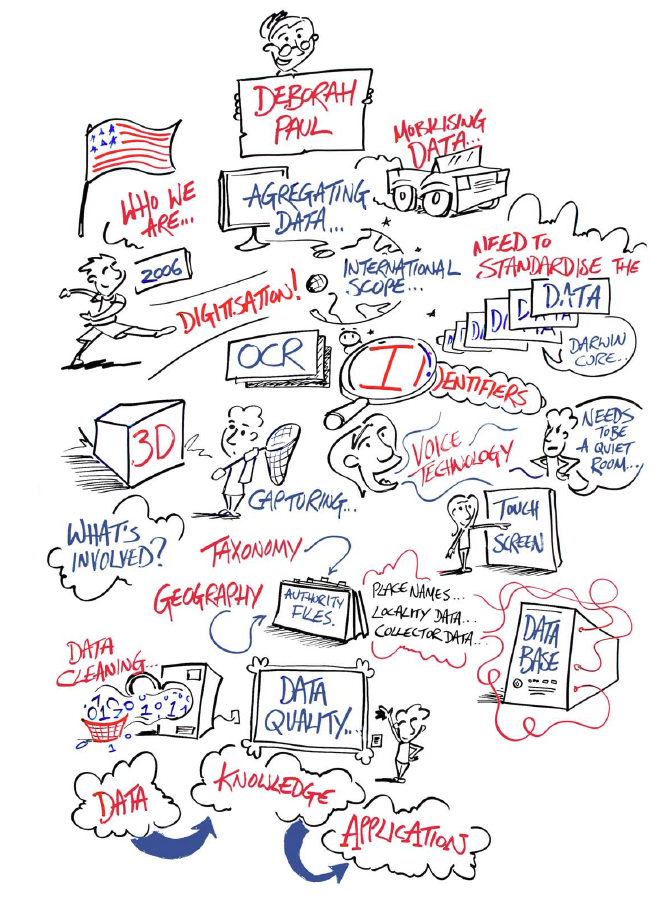 DEBORAH
PAUL
MOBILISING
DATA...
WHO WE
ARE...
AGREGATING
DATA...
2006
DIGITISATION!
INTERNATIONAL
SCOPE...
NEED TO
STANDARDISE THE
DATA
DARWIN
CORE...
OCR
IDENTIFIERS
3D
CAPTURING...
VOICE
TECHNOLOGY
NEEDS
TO BE
A QUIET
ROOM...
WHAT'S
INVOLVED?
TOUCH
SCREEN
TAXONOMY
GEOGRAPHY
AUTHORITY
FILES.
PLACE NAMES...
LOCALITY DATA...
COLLECTOR DATA...
DATA
BASE
DATA
CLEANING...
DATA
QUALITY...
DATA
KNOWLEDGE
APPLICATION